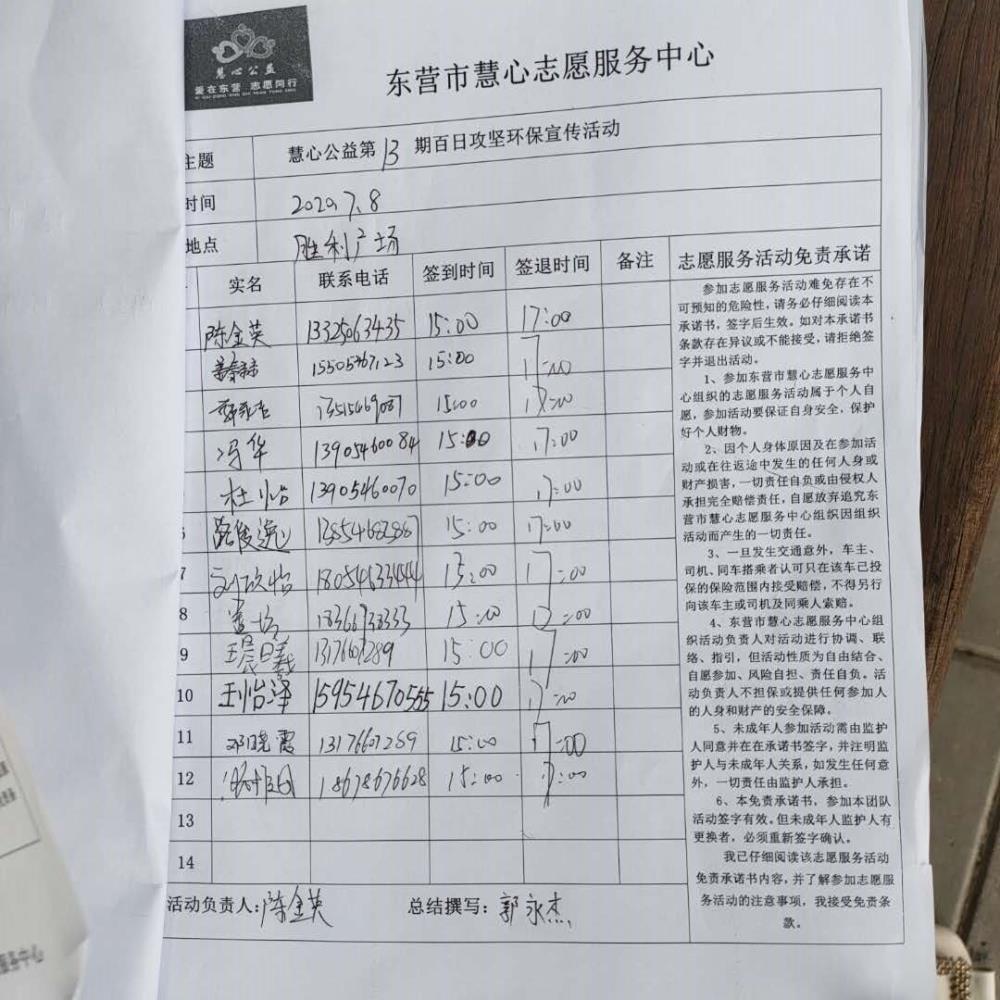 慧心公益
爱在东营 志愿同行
东营市慧心志愿服务中心
主题 慧心公益第13期百日攻坚环保宣传活动
时间 2020.7.8
地点 胜利广场
实名 联系电话 签到时间 签退时间 备注 志愿服务活动免责承诺
陈金英 13325063435 15:00 17:00
15505467123 15:00 17:00
15:00 17:00
冯华 13905460084 15:00 17:00
杜怡 13905460070 15:00 17:00
15:00 17:00
7 18054633444 15:00 17:00
8 15:00 17:00
9 王晨曦 13176607289 15:00 17:00
10 王怡泽 15954670555 15:00 17:00
11 邓晓霞 13176607289 15:00 17:00
12 18678676628 15:00 17:00
13
14
活动负责人:陈金英 总结撰写:郭永杰
参加志愿服务活动难免存在不
可预知的危险性,请务必仔细阅读本
承诺书,签字后生效。如对本承诺书
条款存在异议或不能接受,请拒绝签
字并退出活动。
1、参加东营市慧心志愿服务中
心组织的志愿服务活动属于个人自
愿,参加活动要保证自身安全,保护
好个人财物。
2、因个人身体原因及在参加活
动或在往返途中发生的任何人身或
财产损害,一切责任自负或由侵权人
承担完全赔偿责任,自愿放弃追究东
营市慧心志愿服务中心组织因组织
活动而产生的一切责任。
3、一旦发生交通意外,车主、
司机、同车搭乘者认可只在该车已投
保的保险范围内接受赔偿,不得另行
向该车主或司机及同乘人索赔。
4、东营市慧心志愿服务中心组
织活动负责人对活动进行协调、联
络、指引,但活动性质为自由结合、
自愿参加、风险自担、责任自负。活
动负责人不担保或提供任何参加人
的人身和财产的安全保障。
5、未成年人参加活动需由监护
人同意并在在承诺书签字,并注明监
护人与未成年人关系,如发生任何意
外,一切责任由监护人承担。
6、本免责承诺书,参加本团队
活动签字有效。但未成年人监护人有
更换者,必须重新签字确认。
我已仔细阅读该志愿服务活动
免责承诺书内容,并了解参加志愿服
务活动的注意事项,我接受免责条
款。
服务中心